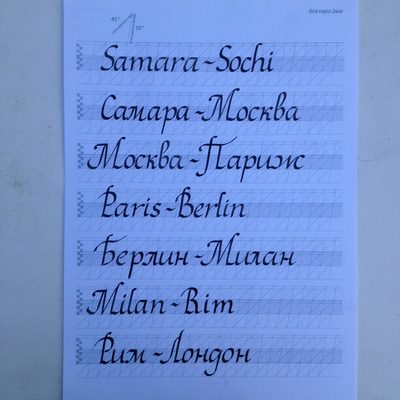 Для пера 2мм
45° 10°
Samara~Sochi
Самара~Москва
Москва~Париж
Paris~Berlin
Берлин~Милан
Milan~Rim
Рим~Лондон